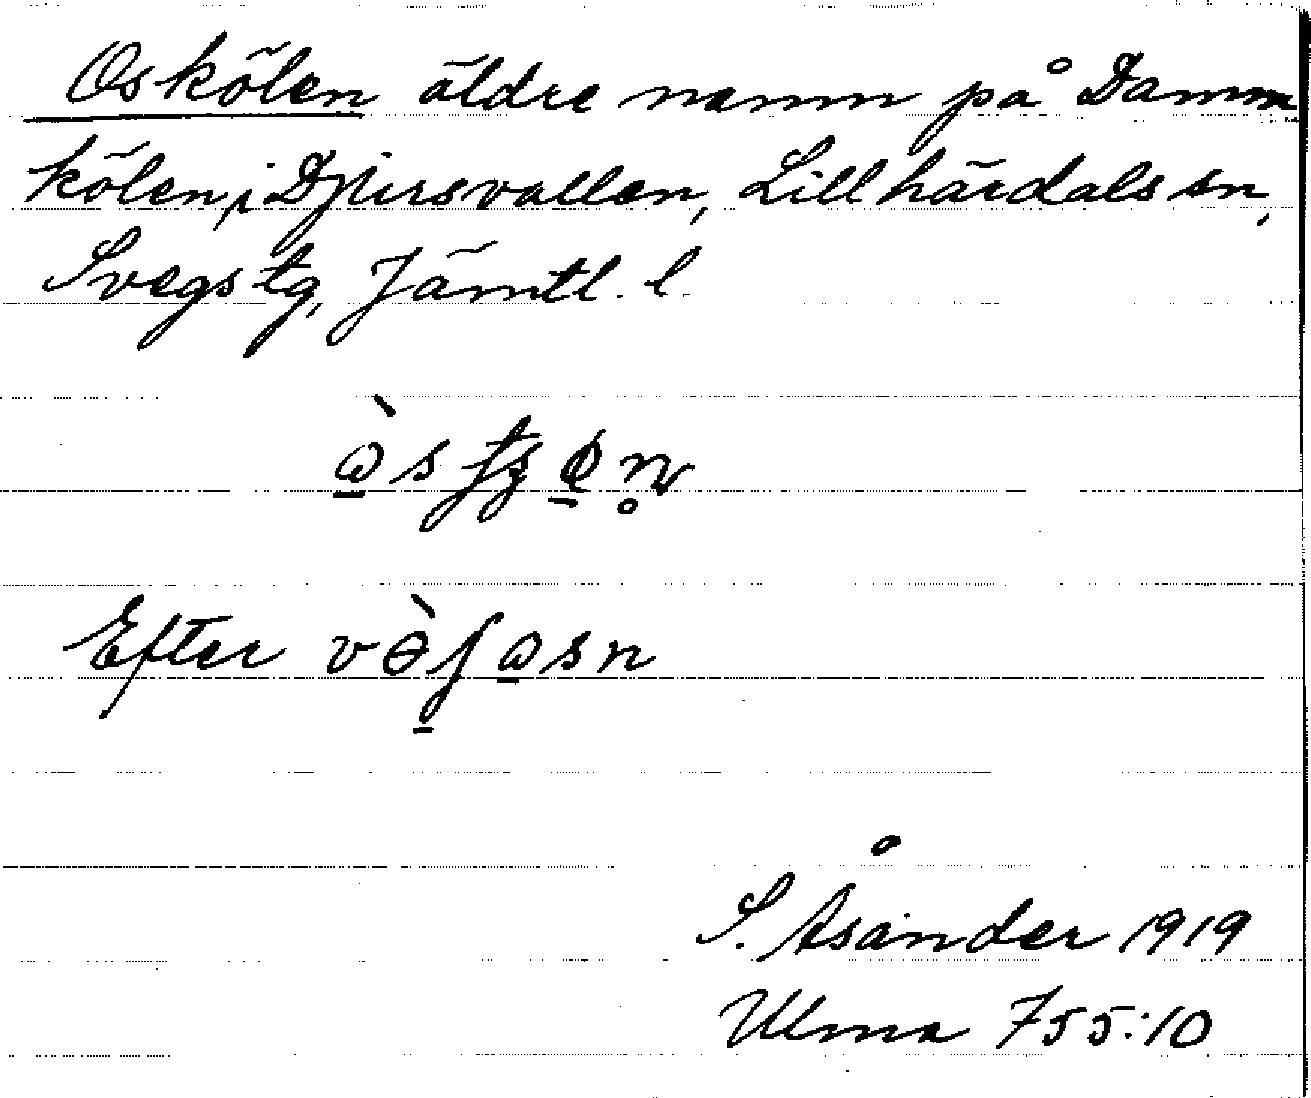 Oskölen äldre namn på Damm
kölen, i Djursvallen, Lillhärdals sn,
Svegs tg, Jämtl. l.
Efter
S. Åsander 1919
Ulma 755:10